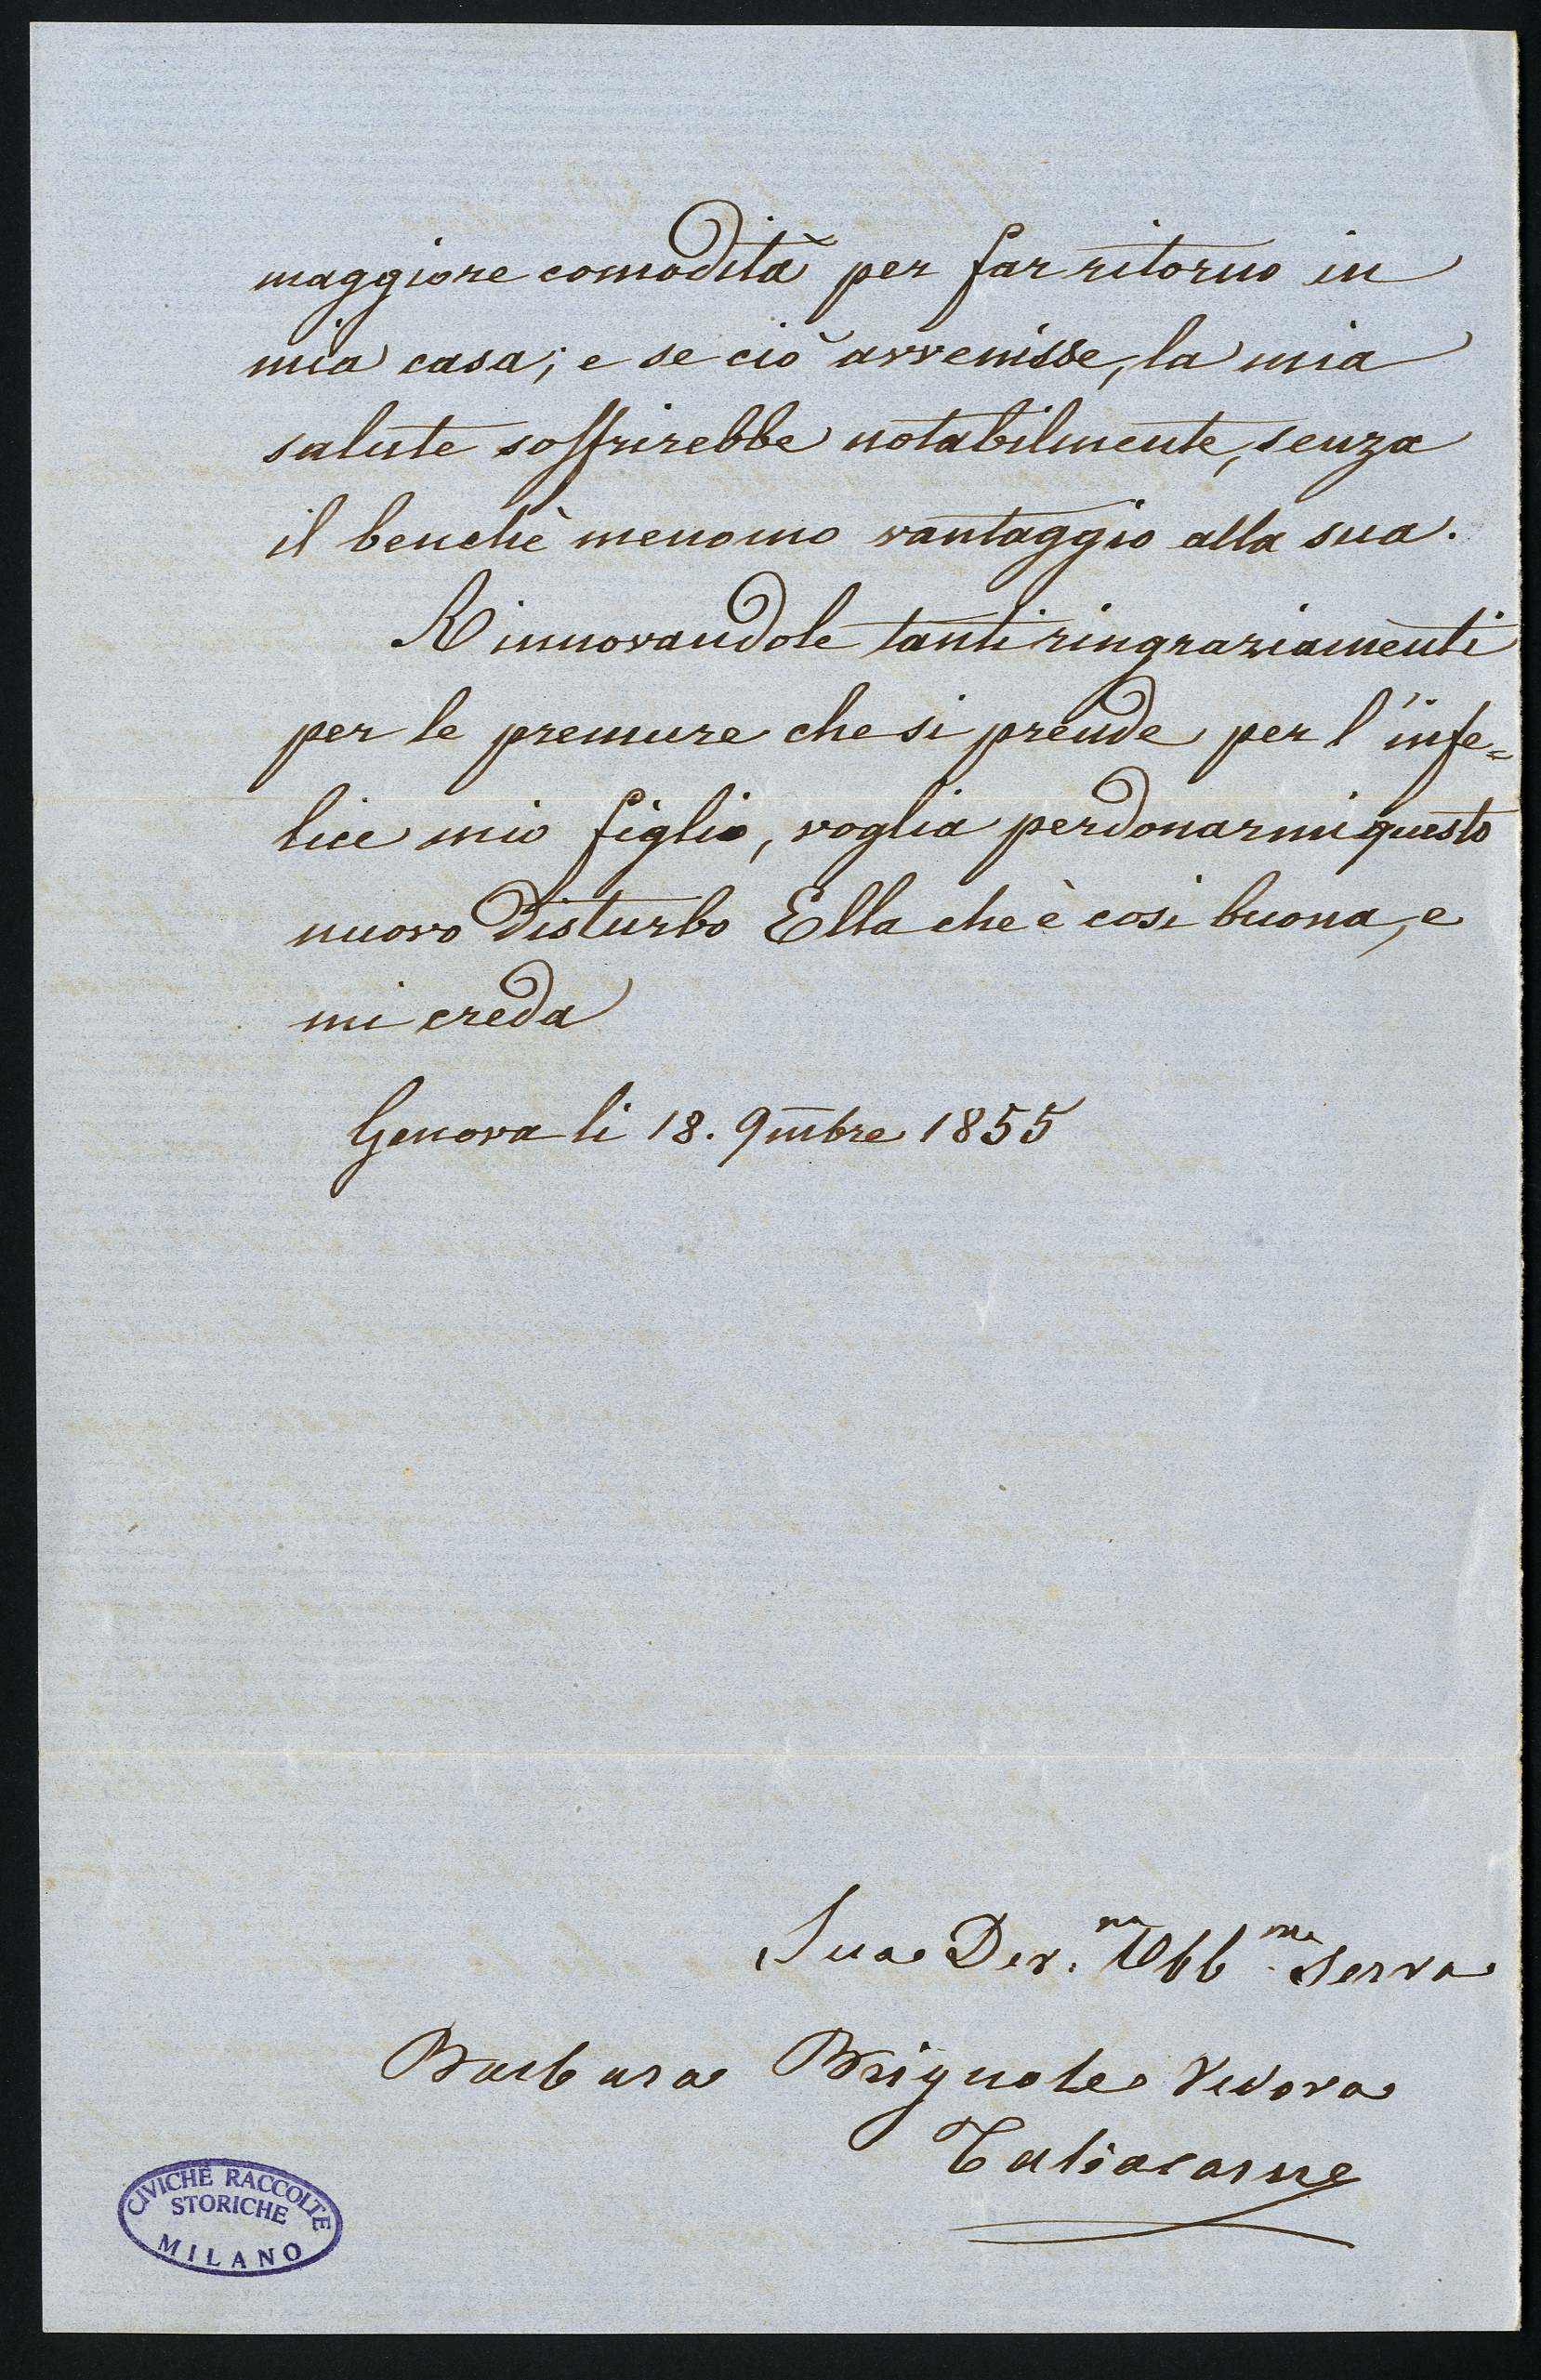 maggiore comodità per far ritorno in
mia casa; e se ciò avvenisse, la mia
salute soffrirebbe notabilmente, senza
il benchè menomo vantaggio alla sua.
Rinnovandole tanti ringraziamenti
per le premure che si prende per l'infe=
lice mio figlio, voglia perdonarmi questo
nuovo disturbo Ella che è così buona, e
mi creda
Genova li 18. 9mbre 1855
Sua Dev.ma Obb.ma Serva
Barbara Brignole Vedova
Taliacarne
CIVICHE RACCOLTE
STORICHE
MILANO